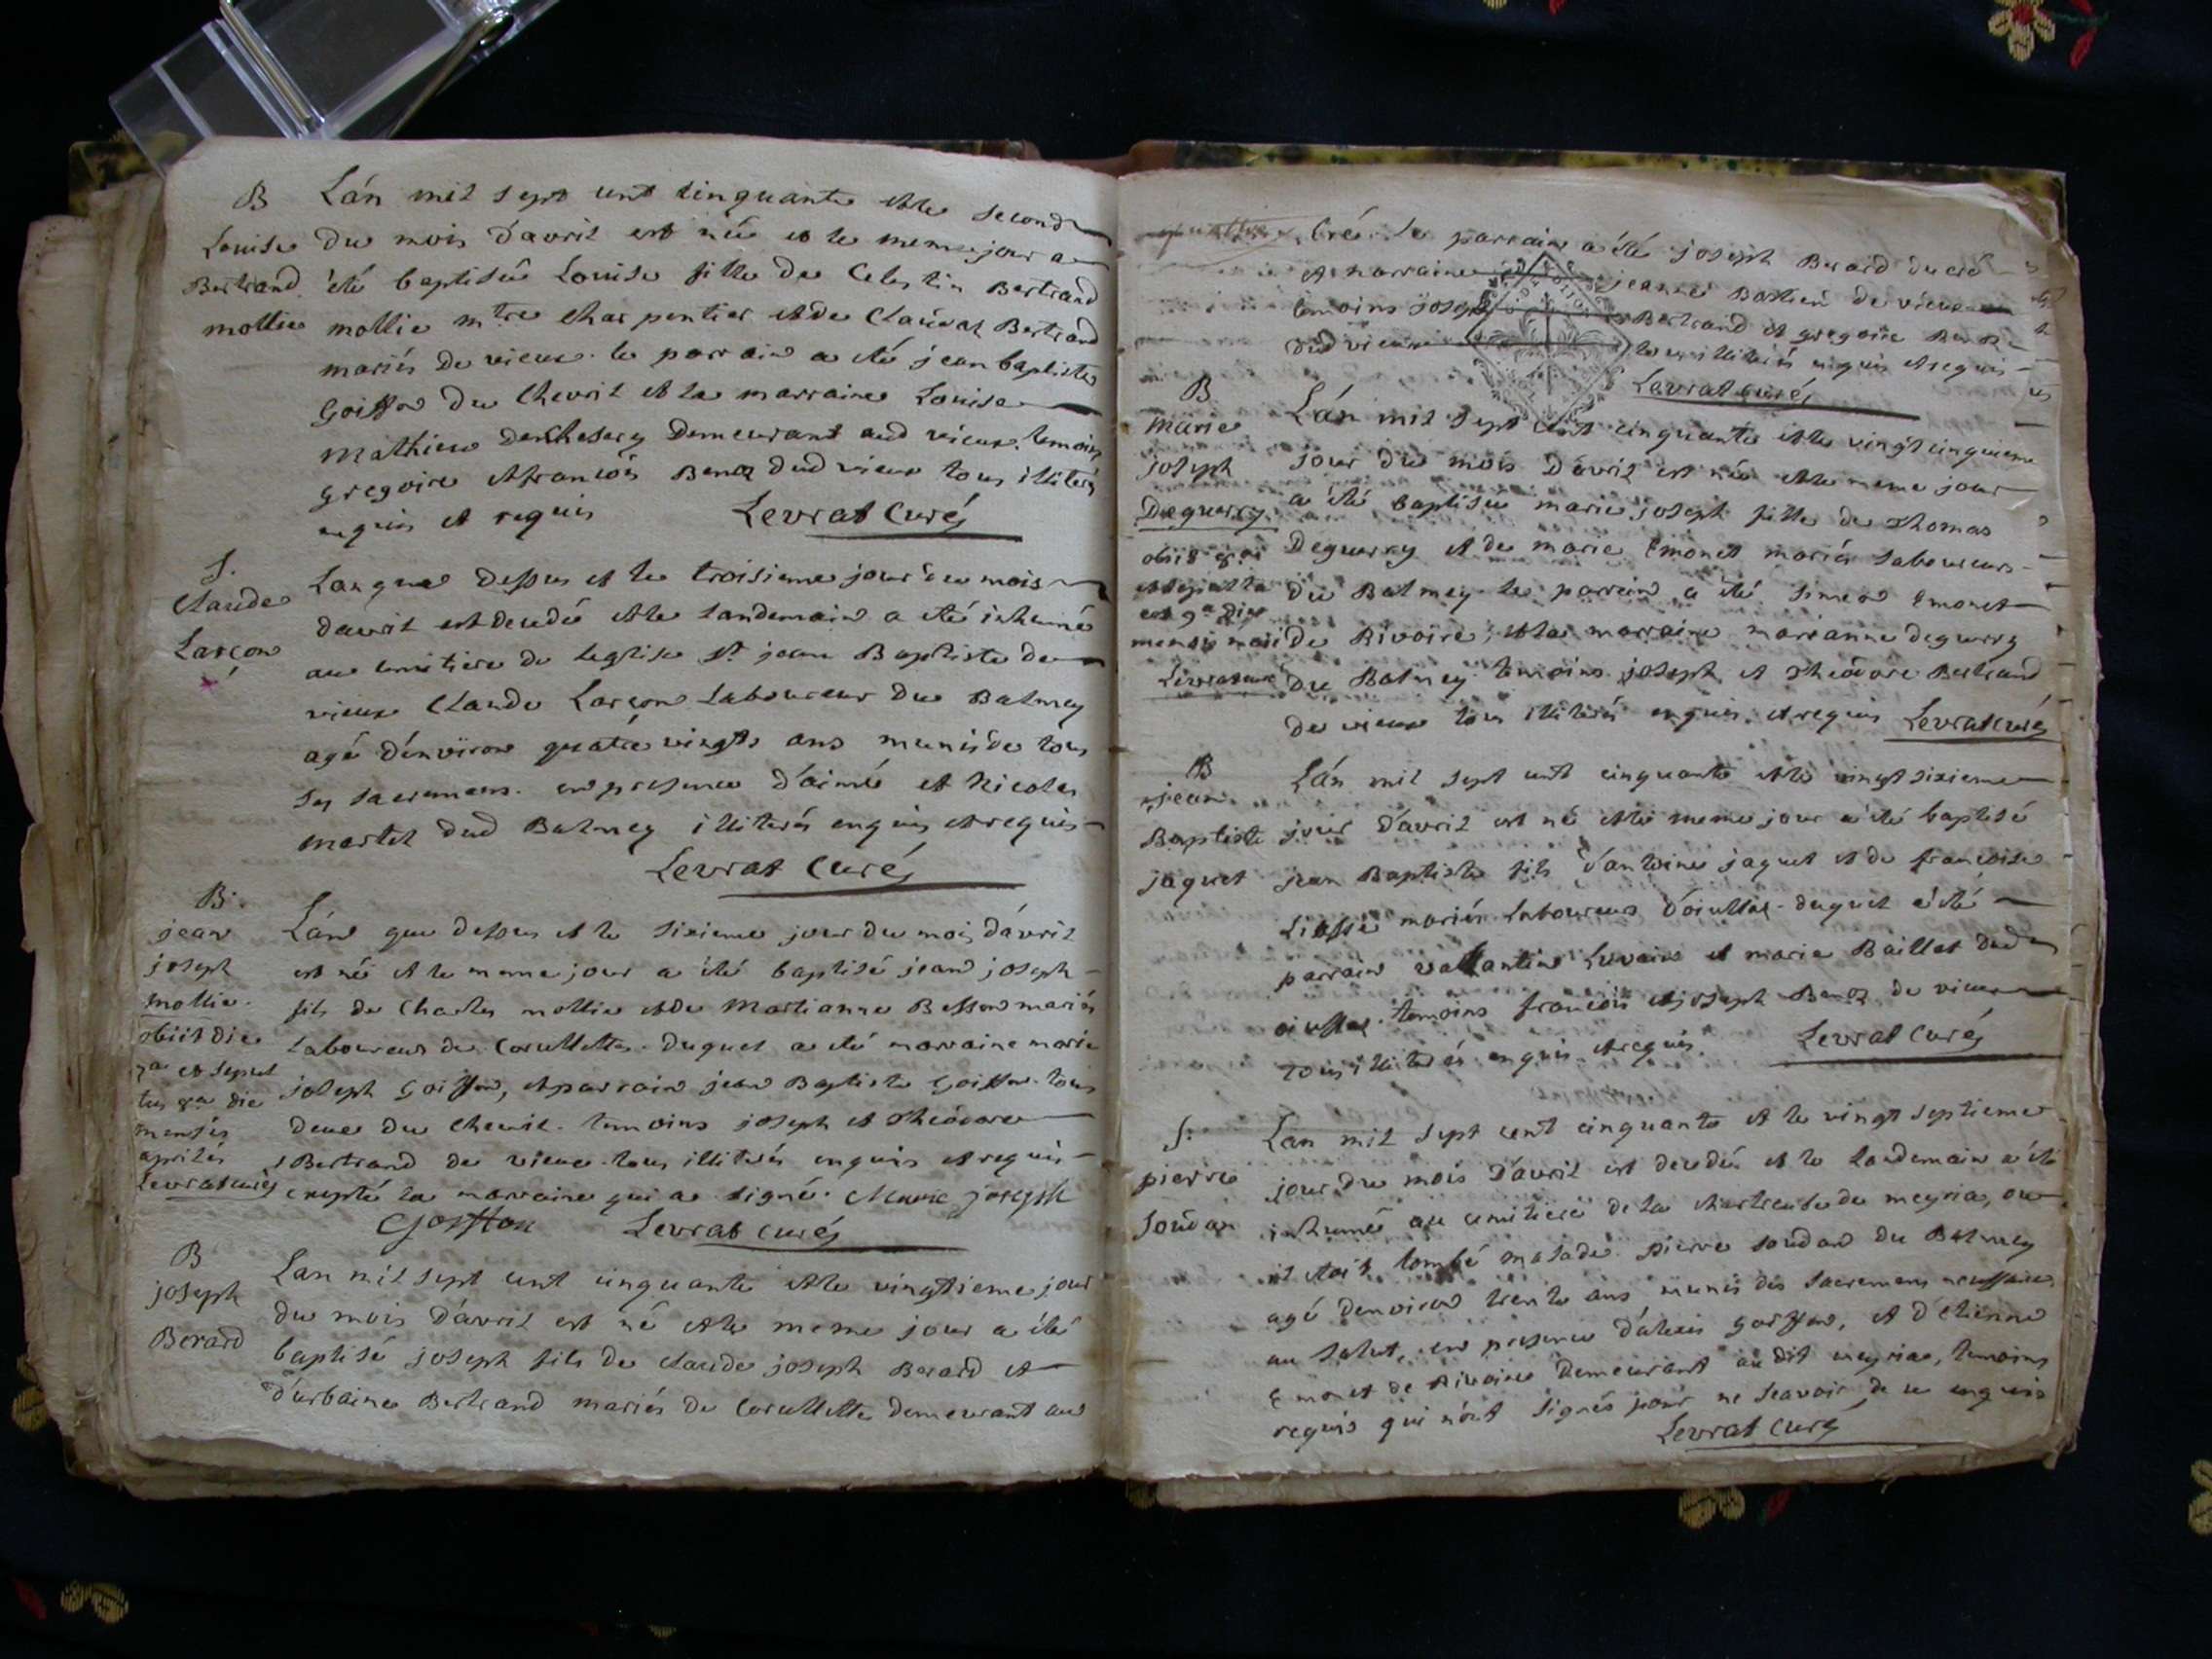 B
Louise
Bertrand
mollie
Lán mil sept cent cinquante et le second
du mois d'avril est née et le meme jour a
été baptisée Louise fille de Celestin Bertrand
mollie mtre charpentier et de Claudaz Bertrand
mariés de vieux. le parrain a été jean baptiste
Goiffon du Chevril et la marraine Louise
Mathieu demeurant aud vieux. temoins
gregoire et francois Benoz dud vieux tous illiterés
enquis et requis Levrat Curé
S.
Claude
Larçon
Lan que dessus et le troisieme jour du mois
davril est decedé et le landemain a été inhumé
au cimitiere de leglise St jean Baptiste de
vieux Claude Larçon Laboureur du Balmey
agé d'environ quatre vingts ans muni de tous
ses sacremens. en presence d'aimé et Nicolas
martel dud Balmey illiterés enquis et requis
Levrat Curé
B.
jean
joseph
mollie.
obiit die
7a et sepul
tus 8a die
mensis
aprilis
Levrat curé
Lán que dessus et le sixieme jour du mois d'avril
est né et le meme jour a été baptisé jean joseph
fils de Charles mollie et de Marianne Besson mariés
Laboureurs de Corcellette. duquel a été marraine marie
joseph Goiffon, et parrain jean Baptiste Goiffon. tous
deux du Chevril. temoins joseph et Théodore
Bertrand de vieux. tous illiterés enquis et requis
excepté la marraine qui a signé. Marie joseph
Goiffon Levrat curé
B
joseph
Berard
Lan mil sept cent cinquante et le vingtieme jour
du mois d'avril est né et le meme jour a été
baptisé joseph fils de claude joseph Berard et
d'urbaine Bertrand mariés de Corcellette demeurant au
Cré. Le parrain a été joseph Berard du cré
et marraine jeanne Bastien de vieux
temoins joseph Bertrand et gregoire Benoz
dud vieux tous illiterés enquis et requis
Levrat curé
B
Marie
joseph
Degurry.
obiit 8a
et sepulta
est 9a die
mensis maii
Levrat curé
Lán mil sept cent cinquante et le vingt cinquieme
jour du mois D'avril est née et le meme jour
a été baptisée marie joseph fille de Thomas
Degurry et de marie Emonet mariés Laboureurs
du Balmey. le parrain a été Simeon Emonet
de Rivoire; et la marraine marianne degurry
du Balmey. temoins joseph et Theodore Bertrand
de vieux tous illiterés enquis et requis Levrat curé
B
jean
Baptiste
jaquet
Lán mil sept cent cinquante et le vingt sixieme
jour d'avril est né et le meme jour a été baptisé
jean Baptiste fils d'antoine jaquet et de francoise
mariés Laboureurs duquel a été
parrain vallantin et marie Baillet dud
temoins francois et joseph Benoz de vieux
tous illiterés enquis et requis. Levrat curé
S.
pierre
Soudan
Lan mil sept cent cinquante et le vingt septieme
jour du mois D'avril est decedé et le landemain a été
inhumé au cimitiere de la chartreuse de meyria, ou
il étoit tombé malade pierre Soudan du Balmey
agé denviron trente ans munis des Sacremens necessaires
au salut, en presence d'alexis goiffon, et d'Etienne
Emonet de Rivoire demeurant au dit meyria, temoins
requis qui n'ont signés pour ne scavoir de ce enquis
Levrat curé